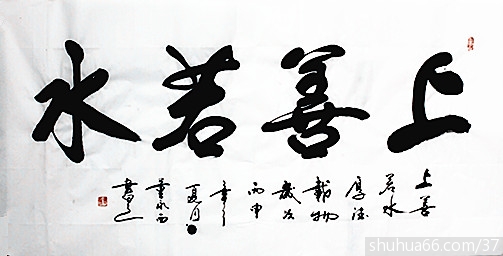 上善若水
上善
若水
厚德
载物
岁次
丙申
年
夏月
書
shuhua66.com/37